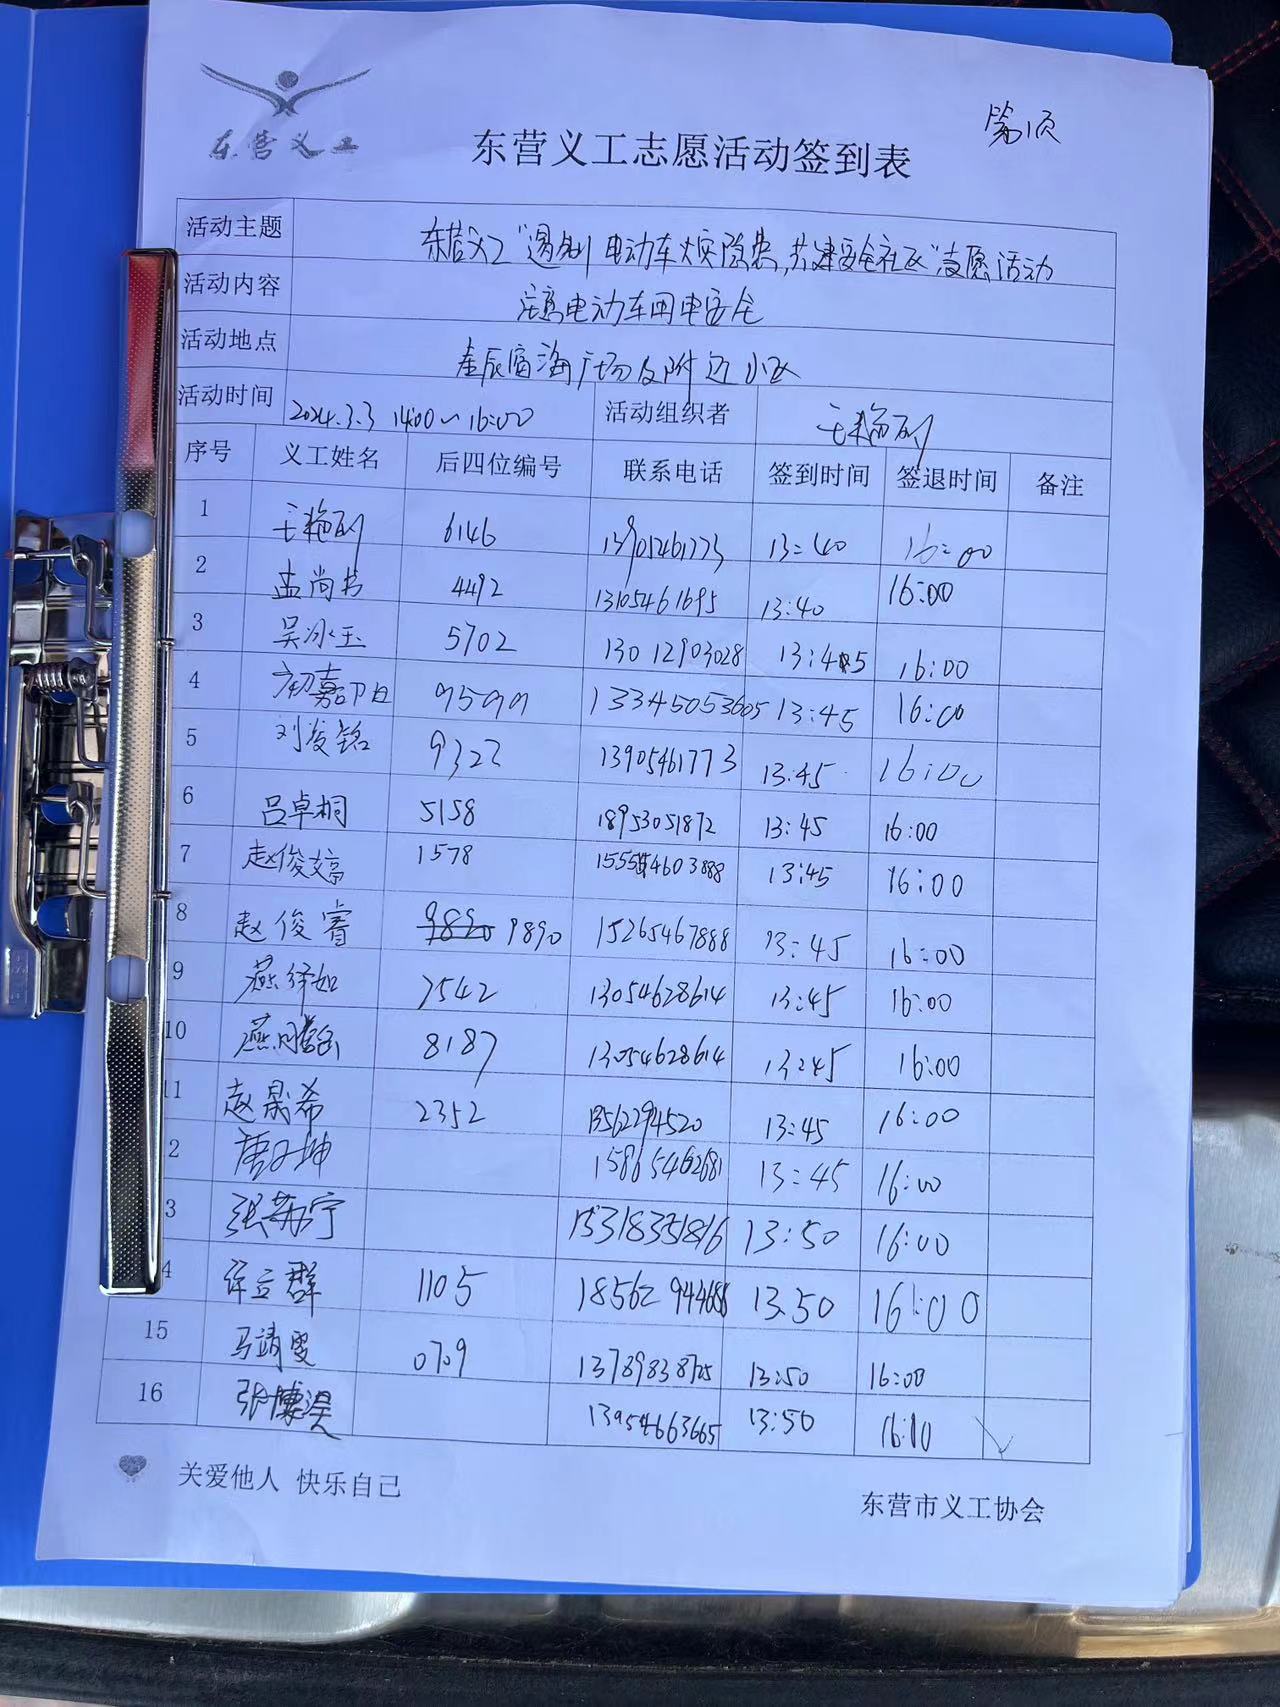 东营义工
第1页
东营义工志愿活动签到表
活动主题 东营义工"遏制电动车火灾隐患,共建安全社区"志愿活动
活动内容 宣传电动车用电安全
活动地点 星辰 海广场及附近小区
活动时间 2024.3.3 14:00~16:00 活动组织者 王艳丽
序号 义工姓名 后四位编号 联系电话 签到时间 签退时间 备注
1 王艳丽 6146 13905461773 13:40 16:00
2 孟尚书 4492 13105461695 13:40 16:00
3 吴冰玉 5702 13012903028 13:45 16:00
4 初嘉 9599 13345053605 13:45 16:00
5 刘俊铭 9322 13905461773 13:45 16:00
6 吕卓桐 5158 18953051872 13:45 16:00
7 赵俊婷 1578 15554603888 13:45 16:00
8 赵俊睿 9890 9890 15265467888 13:45 16:00
9 燕绎如 7542 13054628614 13:45 16:00
10 燕 8187 13054628614 13:45 16:00
11 赵晟希 2352 13562294520 13:45 16:00
2 唐子坤 15865462681 13:45 16:00
3 张苏宁 15318351816 13:50 16:00
4 徐立群 1105 13:50 16:00
15 马靖雯 0709 13789838725 13:50 16:00
16 张博淏 13954663665 13:50 16:10
关爱他人 快乐自己
东营市义工协会